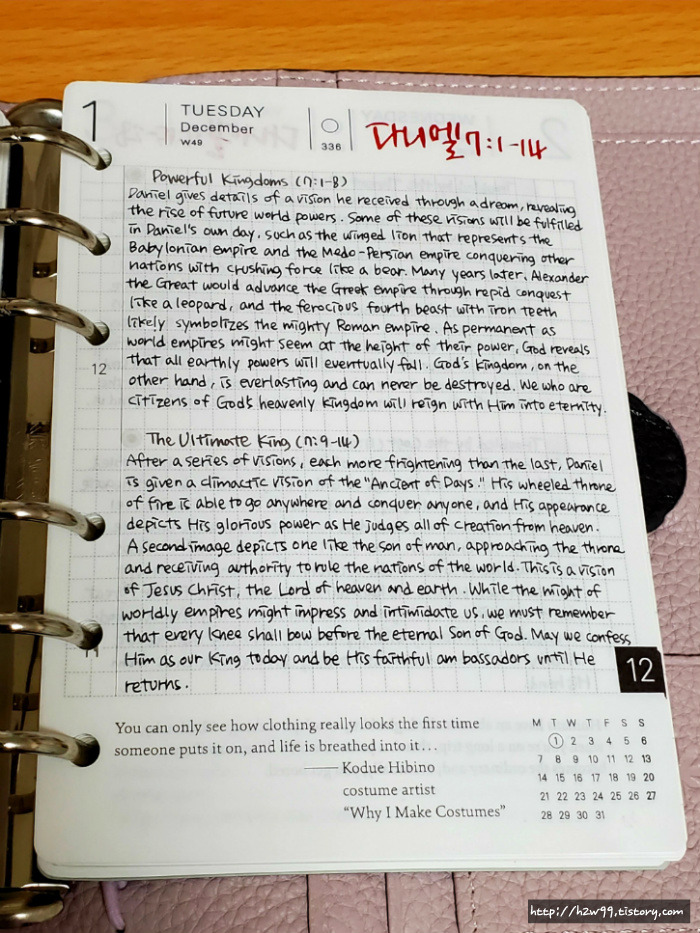 1
TUESDAY
December
W49
336
다니엘 7:1-14
Powerful Kingdoms (7:1-8)
Daniel gives details of a vision he received through a dream, revealing
the rise of future world powers. Some of these visions will be fulfilled
in Daniel's own day, such as the winged lion that represents the
Babylonian empire and the Medo-Persian empire conquering other
nations with crushing force like a bear. Many years later, Alexander
the Great would advance the Greek empire through repid conquest
like a leopard, and the ferocious fourth beast with iron teeth
likely symbolizes the mighty Roman empire. As permanent as
world empires might seem at the height of their power, God reveals
12
that all earthly powers will eventually fall. God's kingdom, on the
other hand, is everlasting and can never be destroyed. We who are
citizens of God's heavenly kingdom will reign with Him into eternity.
The Ultimate King (7:9-14)
After a series of visions, each more frightening than the last, Daniel
is given a climactic vision of the "Ancient of Days." His wheeled throne
of fire is able to go anywhere and conquer anyone, and His appearance
depicts His glorious power as He judges all of creation from heaven.
A second image depicts one like the son of man, approaching the throne
and receiving authority to rule the nations of the world. This is a vision
of Jesus Christ, the Lord of heaven and earth. While the might of
worldly empires might impress and intimidate us, we must remember
that every knee shall bow before the eternal Son of God. May we confess
Him as our King today and be His faithful am bassadors until He
returns.
12
You can only see how clothing really looks the first time
someone puts it on, and life is breathed into it...
—— Kodue Hibino
costume artist
"Why I Make Costumes"
M T W T F S S
1 2 3 4 5 6
7 8 9 10 11 12 13
14 15 16 17 18 19 20
21 22 23 24 25 26 27
28 29 30 31
http://h2w99.tistory.com